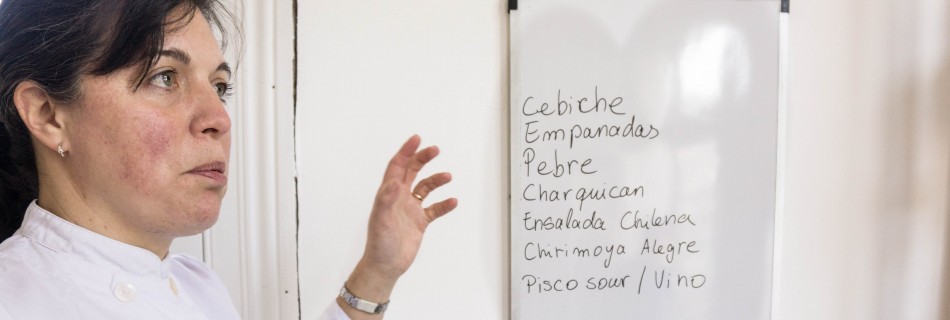 Cebiche
Empanadas
Pebre
Charquican
Ensalada Chilena
Chirimoya Alegre
Pisco sour / Vino